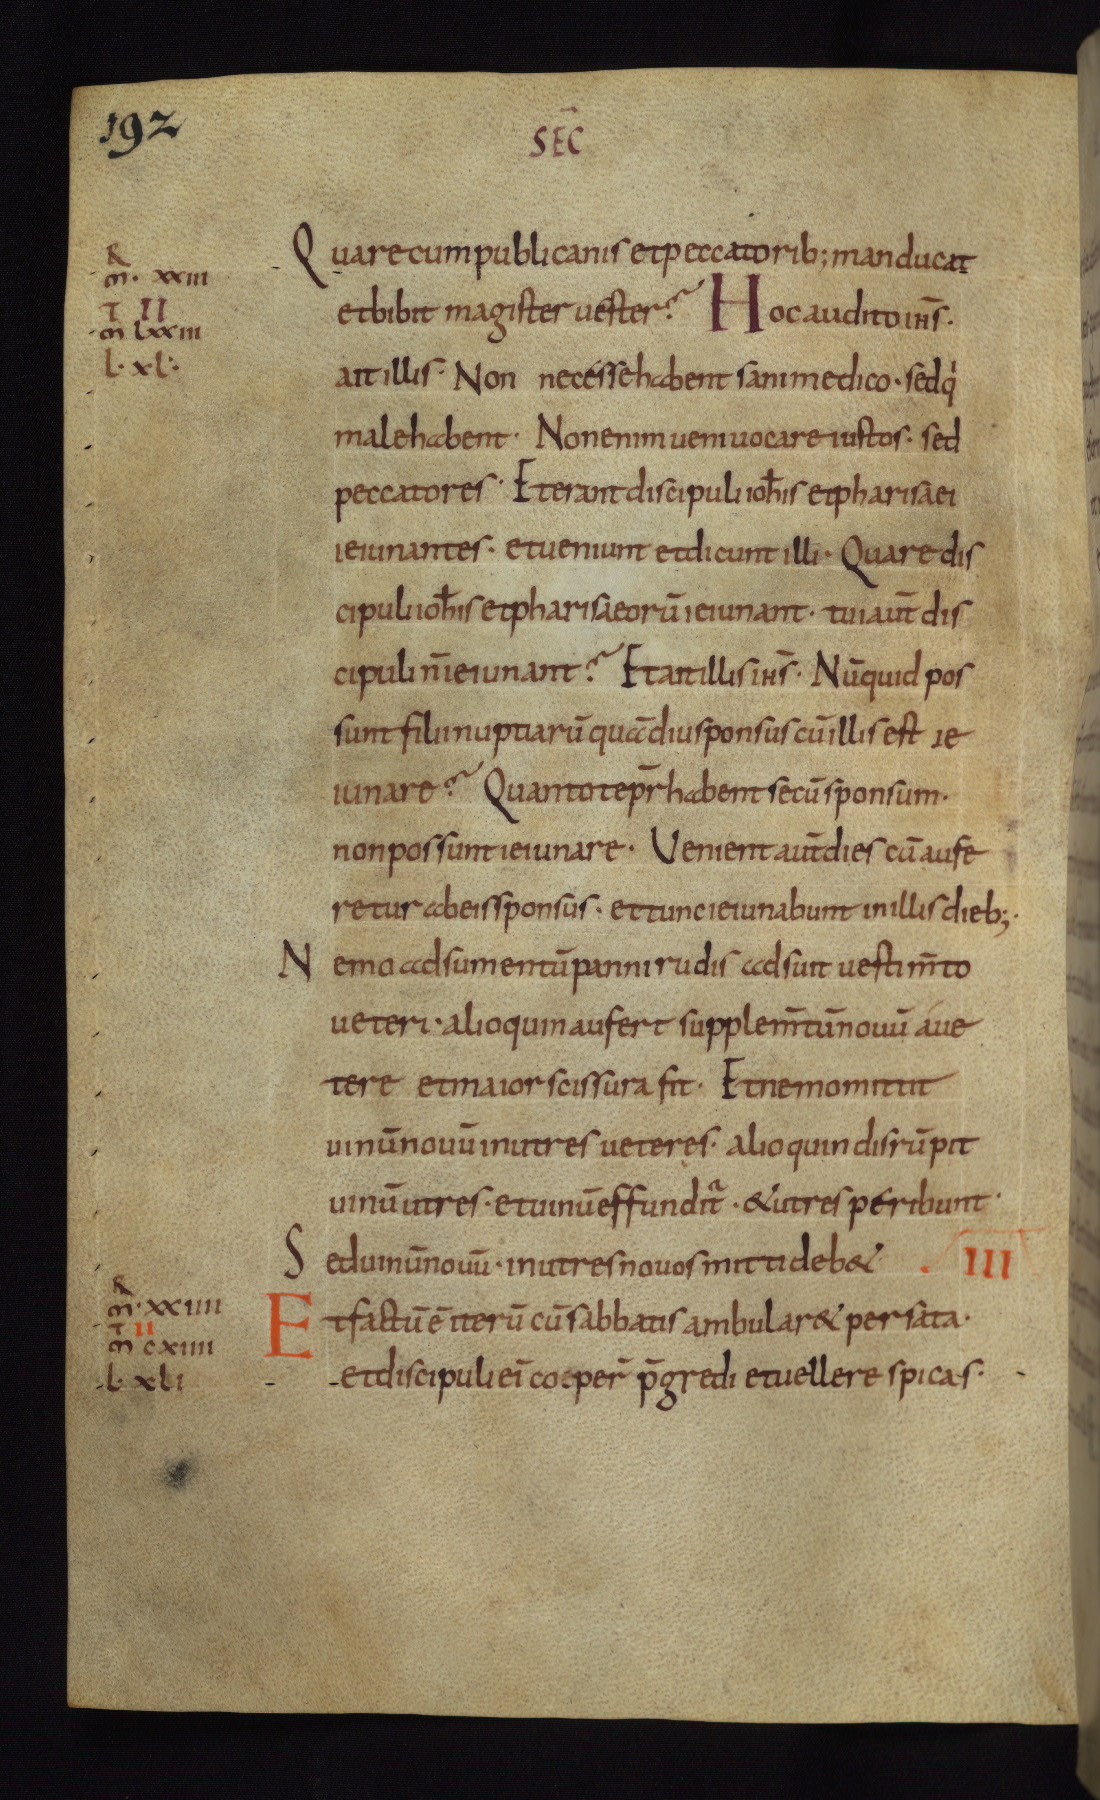 192
SEC̄
Quare cum publicanis et peccatorib; manducat
R
m̄. xxiii
et bibit magister uester? Hoc audito ih̄s.
T II
m̄ lxxiii
ait illis. Non necesse habent sani medico. sed q̇
l. xl.
male habent. Non enim ueni uocare iustos. sed
peccatores. Et erant discipuli ioh̄is et pharisaei
ieiunantes. et ueniunt et dicunt illi. Quare dis
cipuli ioh̄is et pharisaeorū ieiunant. tui aut̄ dis
cipuli n̄ ieiunant? Et ait illis ih̄s. Nūquid pos
sunt filii nuptiarū quādiu sponsus cū illis est ie
iunare? Quanto tēpr̄ habent secū sponsum.
non possunt ieiunare. Venient aut̄ dies cū aufe
retur ab eis sponsus. et tunc ieiunabunt in illis dieb;.
Nemo adsumentū panni rudis adsuit uestim̄to
ueteri. alioquin aufert supplem̄tū nouū a ue
tere et maior scissura fit. Et nemo mittit
uinū nouū in utres ueteres. alioquin disrūpit
uinū utres. et uinū effundit̄. & utres peribunt.
Sed uinū nouū. in utres nouos mitti deb& . III
R
m̄. xxiiii
Et factū ē iterū cū sabbatis ambular& per sata.
T II
m̄ cxiiii
et discipuli ei᷒ coeper̄ p̄gredi et uellere spicas.
l. xli